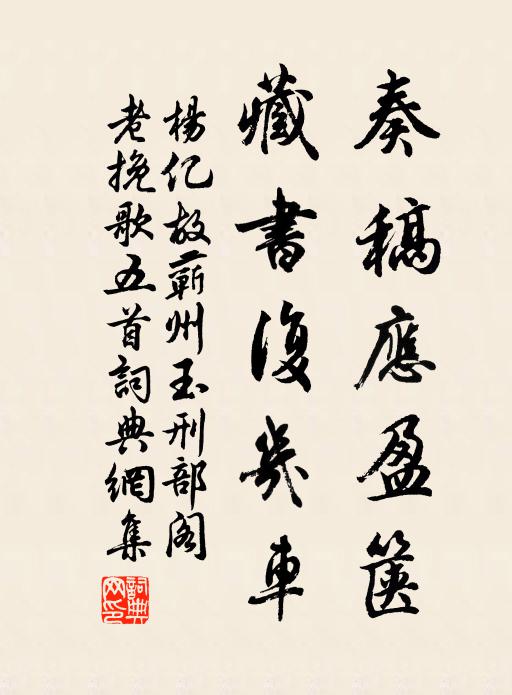 奏稿應盈篋
藏書復幾車
楊億故蘄州玉刑部閣
老挽歌五首詞典網集
詞典網印